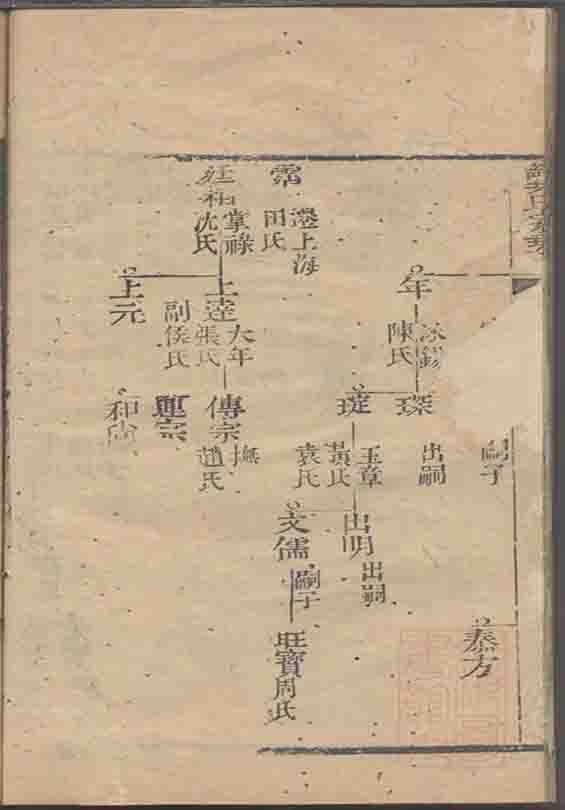 嗣子
泰方
年
陳氏
琛
出嗣
珽
玉章
黃氏
袁氏
出明
出嗣
文儒
嗣子
旺寶
周氏
霑
遷上海
田氏
掌祿
沈氏
上達
大年
張氏
副侯氏
傳宗
撫
趙氏
運宗
上元
和尚